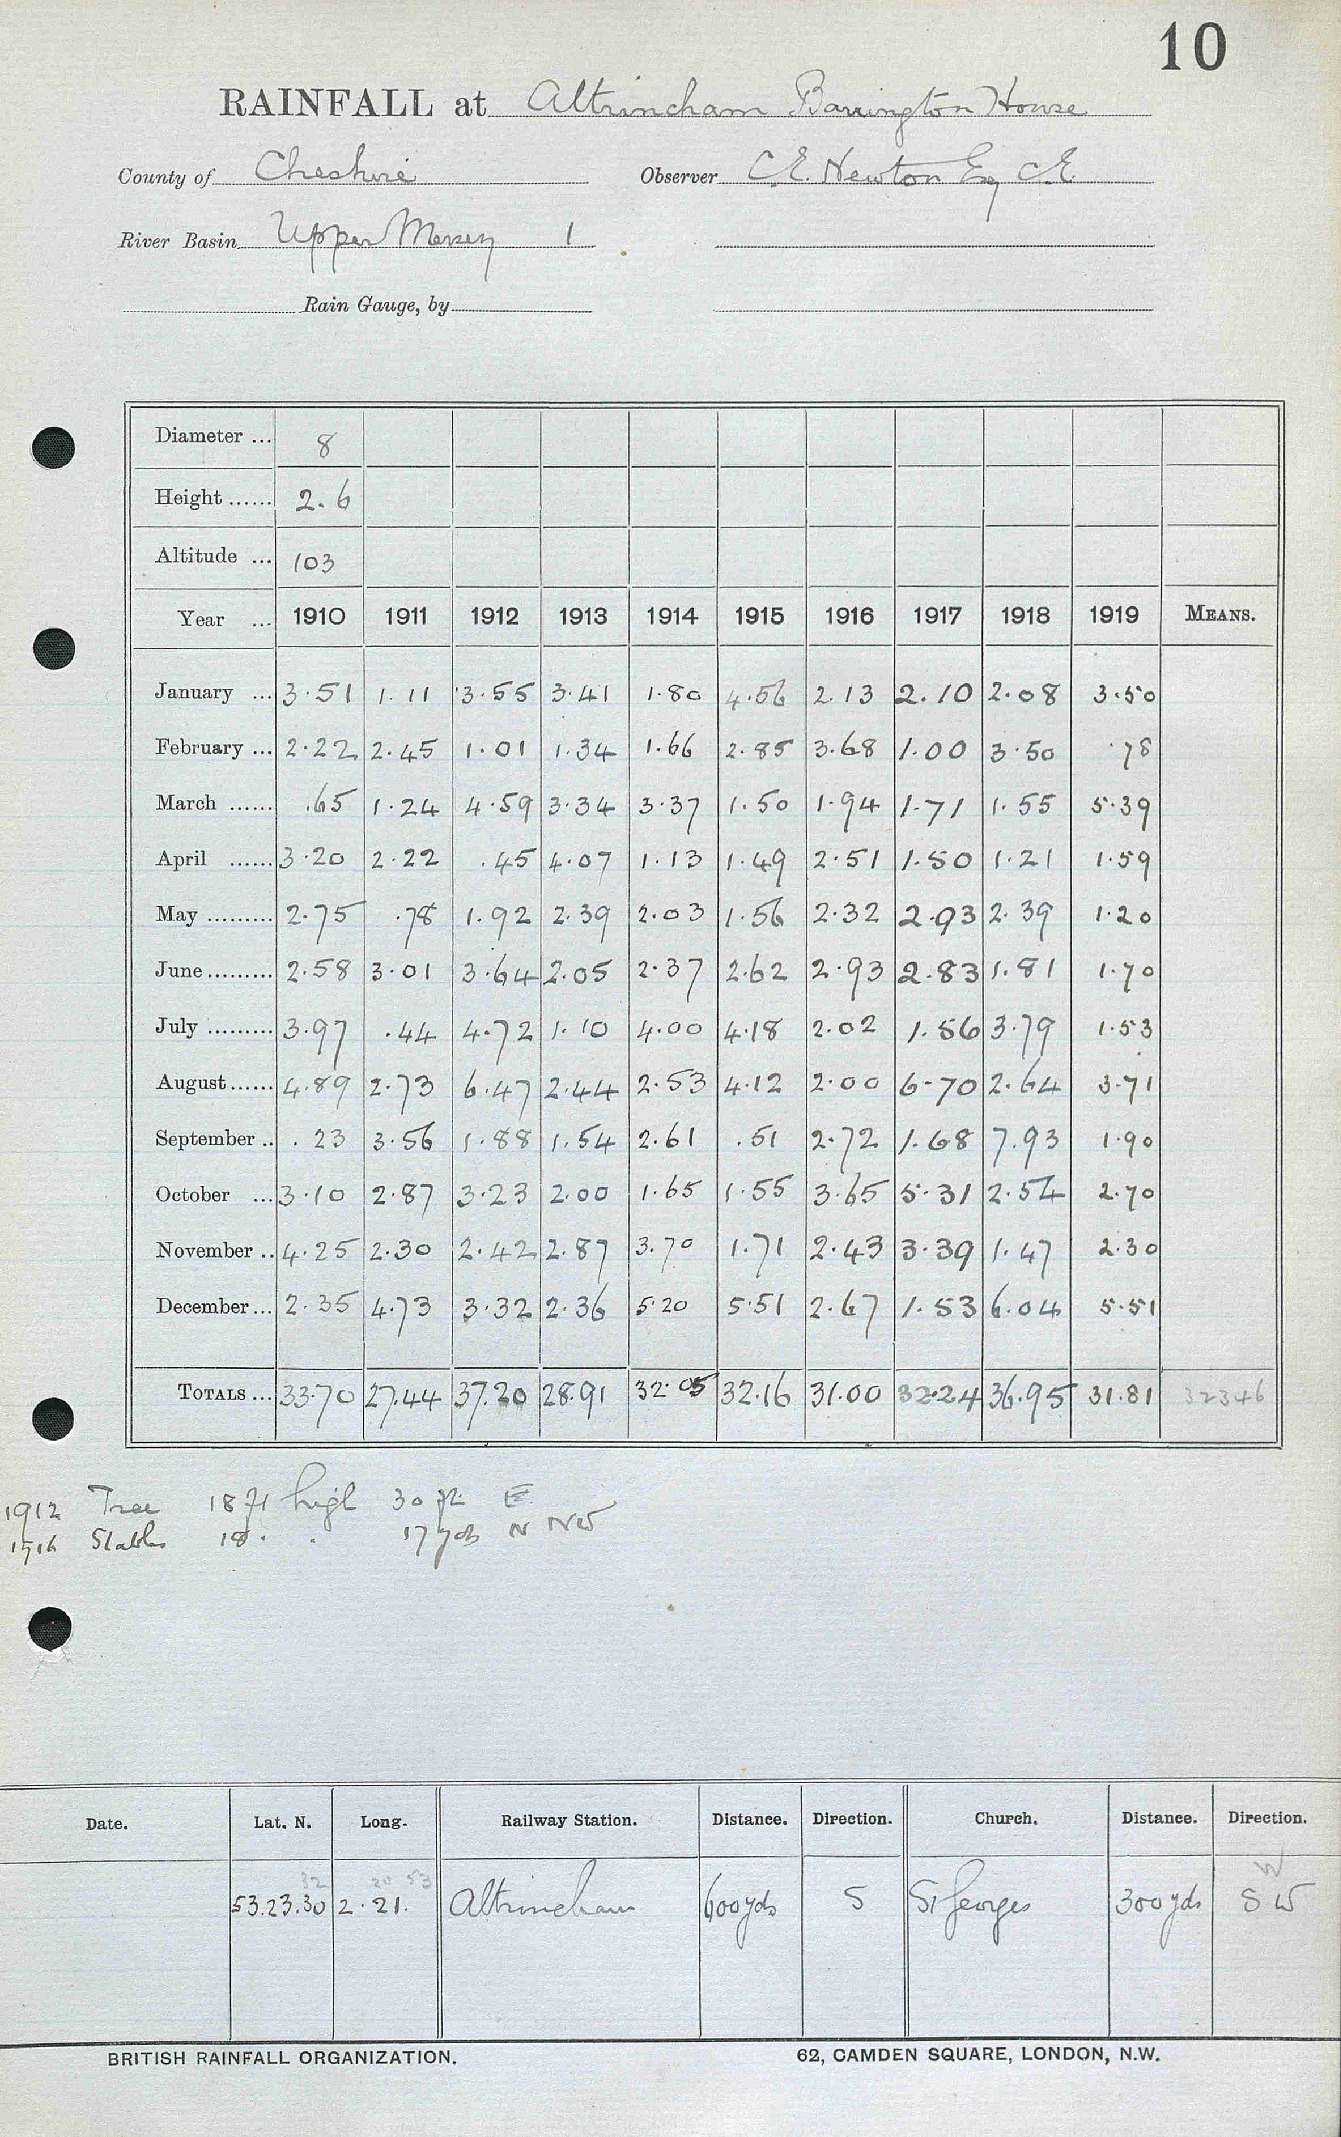 10
RAINFALL at Altrincham Barrington House
County of Cheshire Observer C.E. Newton Esq C.E.
River Basin Upper Mersey 1
Rain Gauge, by
Diameter ... 8
Height ...... 2.6
Altitude ... 103
Year ... 1910 1911 1912 1913 1914 1915 1916 1917 1918 1919 MEANS.
January ... 3.51 1.11 3.55 3.41 1.80 4.56 2.13 2.10 2.08 3.50
February ... 2.22 2.45 1.01 1.34 1.66 2.85 3.68 1.00 3.50 .78
March ...... .65 1.24 4.59 3.34 3.37 1.50 1.94 1.71 1.55 5.39
April ...... 3.20 2.22 .45 4.07 1.13 1.49 2.51 1.50 1.21 1.59
May ......... 2.75 .78 1.92 2.39 2.03 1.56 2.32 2.93 2.39 1.20
June ......... 2.58 3.01 3.64 2.05 2.37 2.62 2.93 2.83 1.81 1.70
July ......... 3.97 .44 4.72 1.10 4.00 4.18 2.02 1.56 3.79 1.53
August ...... 4.89 2.73 6.47 2.44 2.53 4.12 2.00 6.70 2.64 3.71
September .. .23 3.56 1.88 1.54 2.61 .51 2.72 1.68 7.93 1.90
October ... 3.10 2.87 3.23 2.00 1.65 1.55 3.65 5.31 2.54 2.70
November .. 4.25 2.30 2.42 2.87 3.70 1.71 2.43 3.39 1.47 2.30
December ... 2.35 4.73 3.32 2.36 5.20 5.51 2.67 1.53 6.04 5.51
TOTALS ... 33.70 27.44 37.20 28.91 32.05 32.16 31.00 32.24 36.95 31.81 32346
1912 Tree 18 ft high 30 ft E
1916 Stables 18 . . 17 yds N NW
Date. Lat. N. Long. Railway Station. Distance. Direction. Church. Distance. Direction.
32 20 53 W
53.23.30 2.21. Altrincham 600 yds S St Georges 300 yds SW
BRITISH RAINFALL ORGANIZATION. 62, CAMDEN SQUARE, LONDON, N.W.